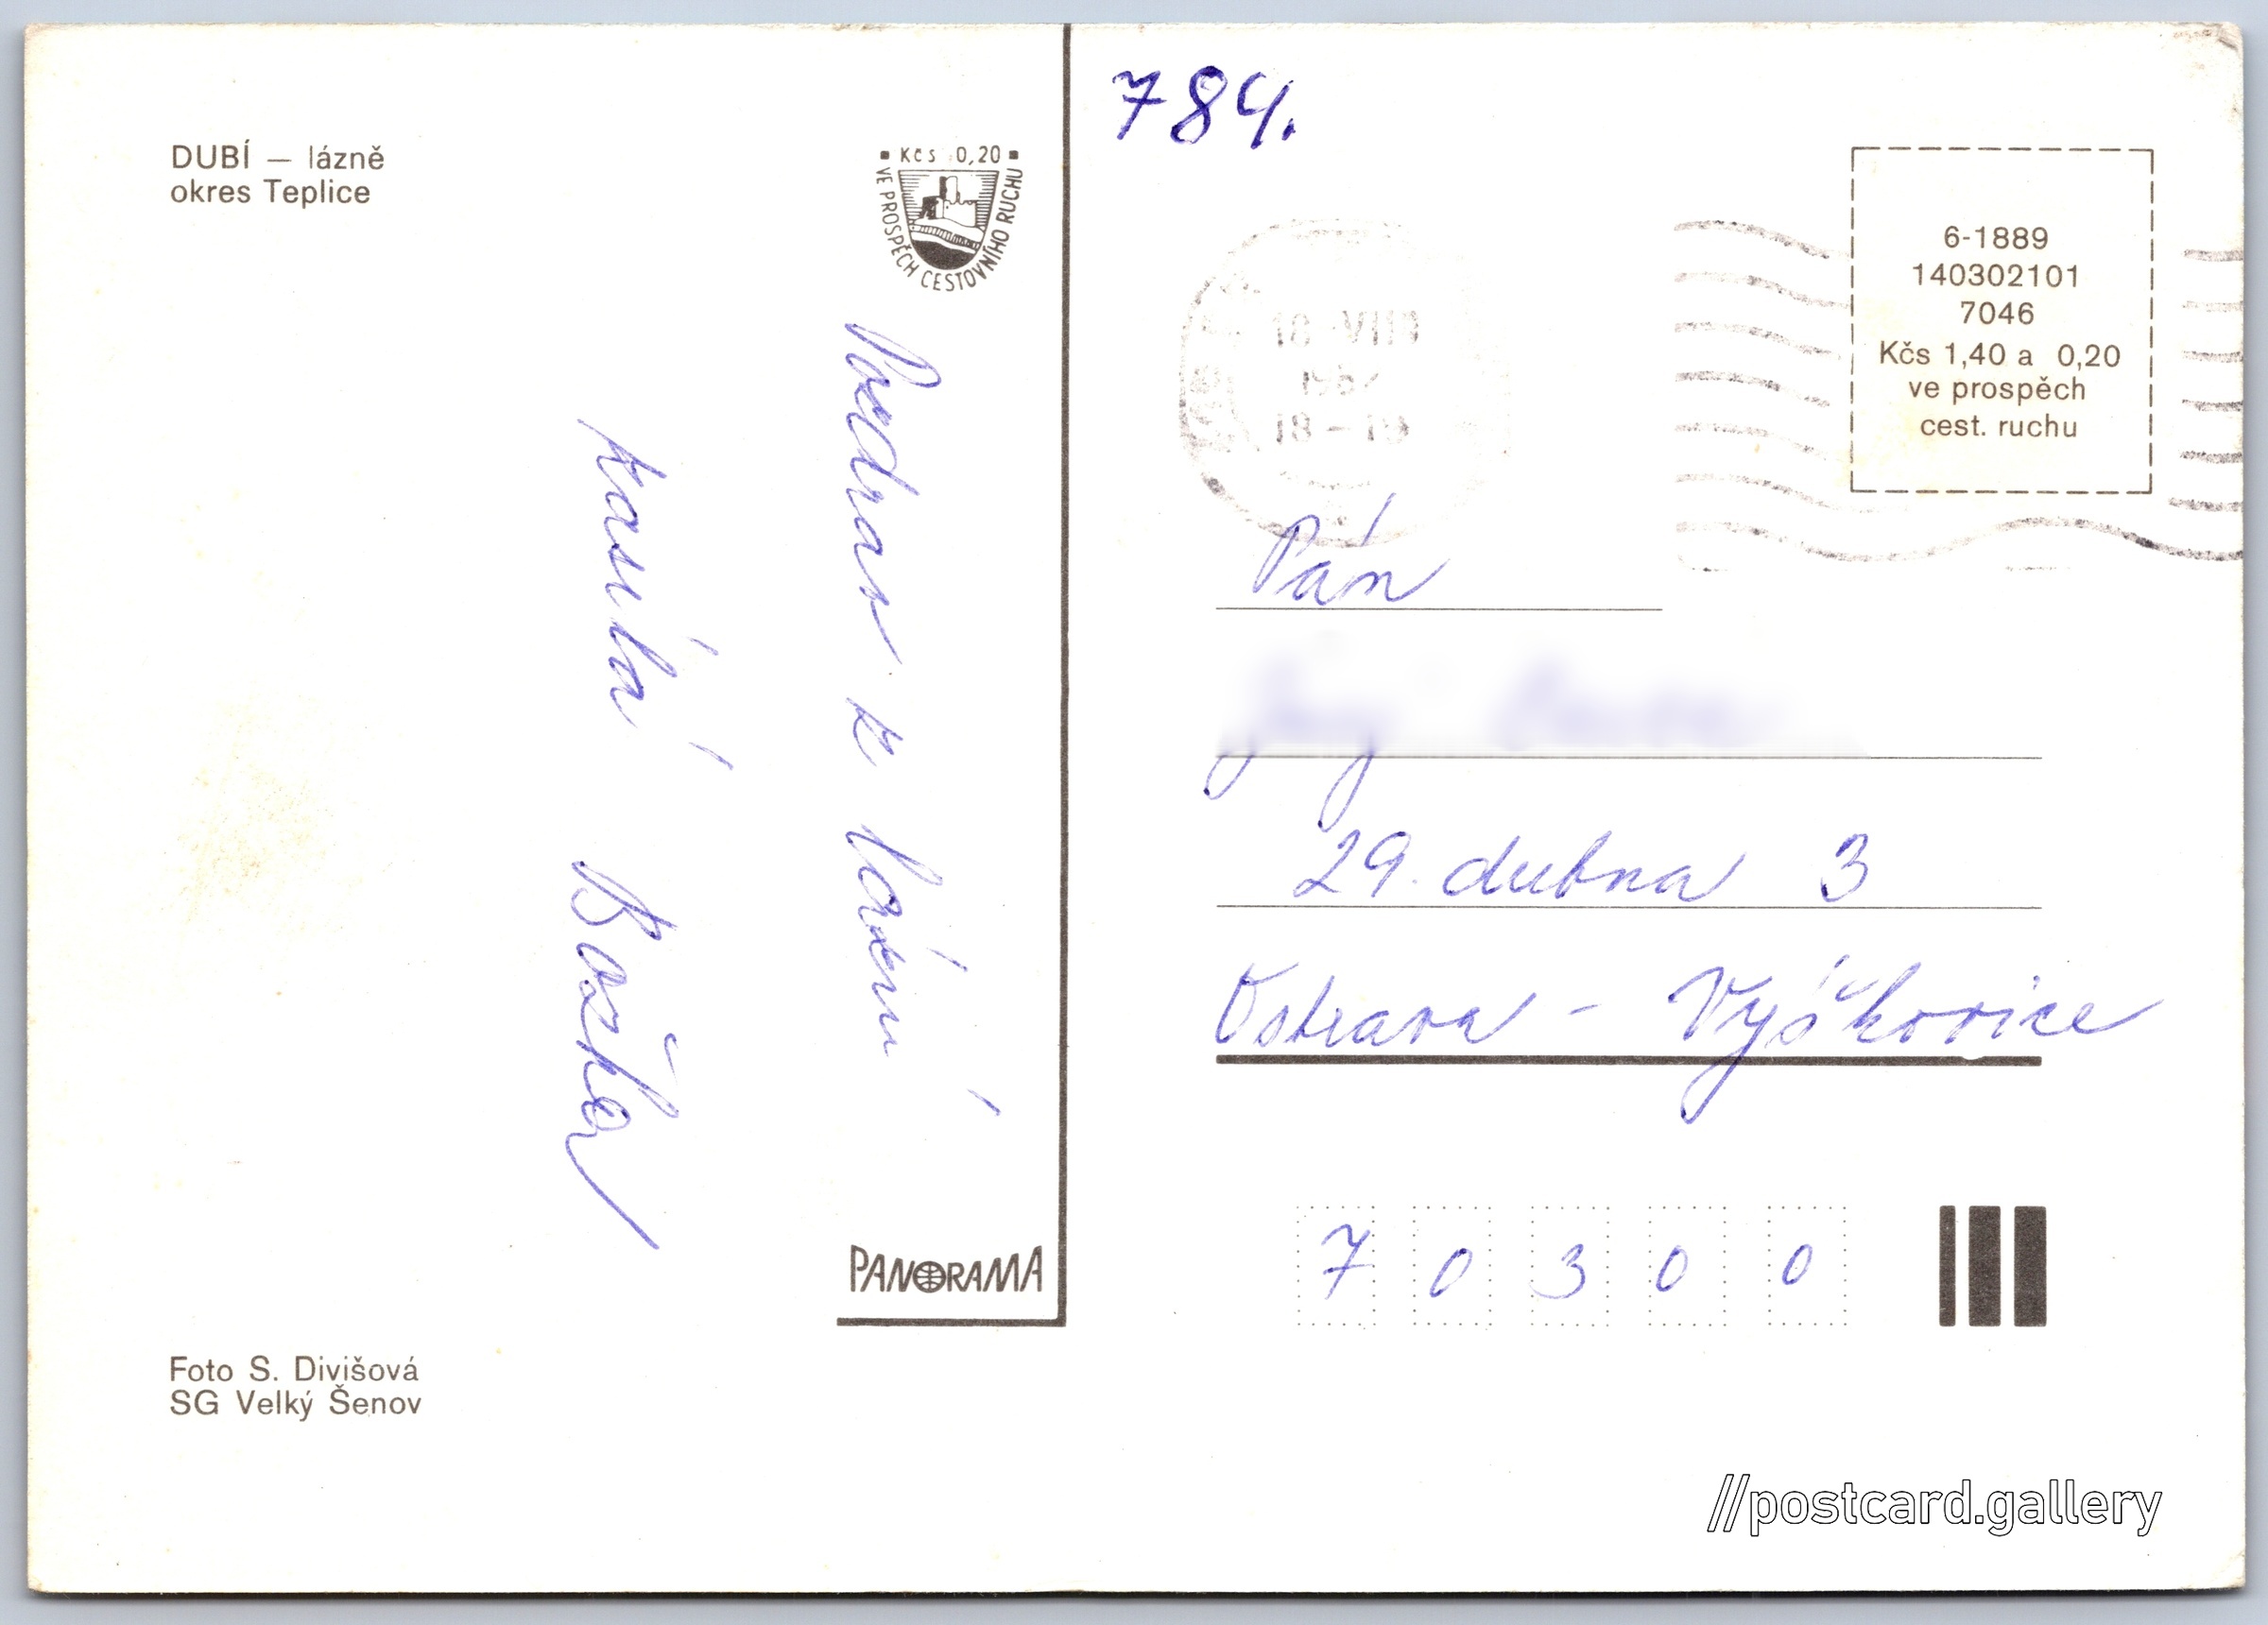 DUBÍ — lázně
okres Teplice
■ Kčs 0,20 ■
VE PROSPĚCH CESTOVNÍHO RUCHU
Pozdrav z lázní
Boška
PANORAMA
Foto S. Divišová
SG Velký Šenov
784.
18 -VIII
18 - 19
6-1889
140302101
7046
Kčs 1,40 a 0,20
ve prospěch
cest. ruchu
Pán
29. dubna 3
Ostrava - Výškovice
7 0 3 0 0
//postcard.gallery